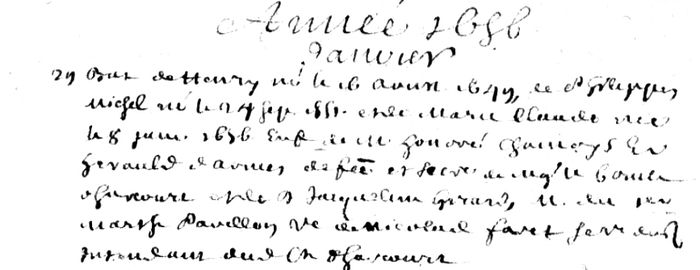 Année 1656
Janvier
29 Bat. de Henry né le 16 avril 1649, de Philippes
Michel né le 24 sep. 1651 et de Marie Claude née
le 8 janv. 1656 Enf. de M. Honoré Chamoys Er
herauld d'armes de et Secre. de Mgr le Comte
d'harcourt et de D Jacqueline Girard, M. du
Marthe Pavillon ve de Nicolas
Intendant dud Cte d'harcourt